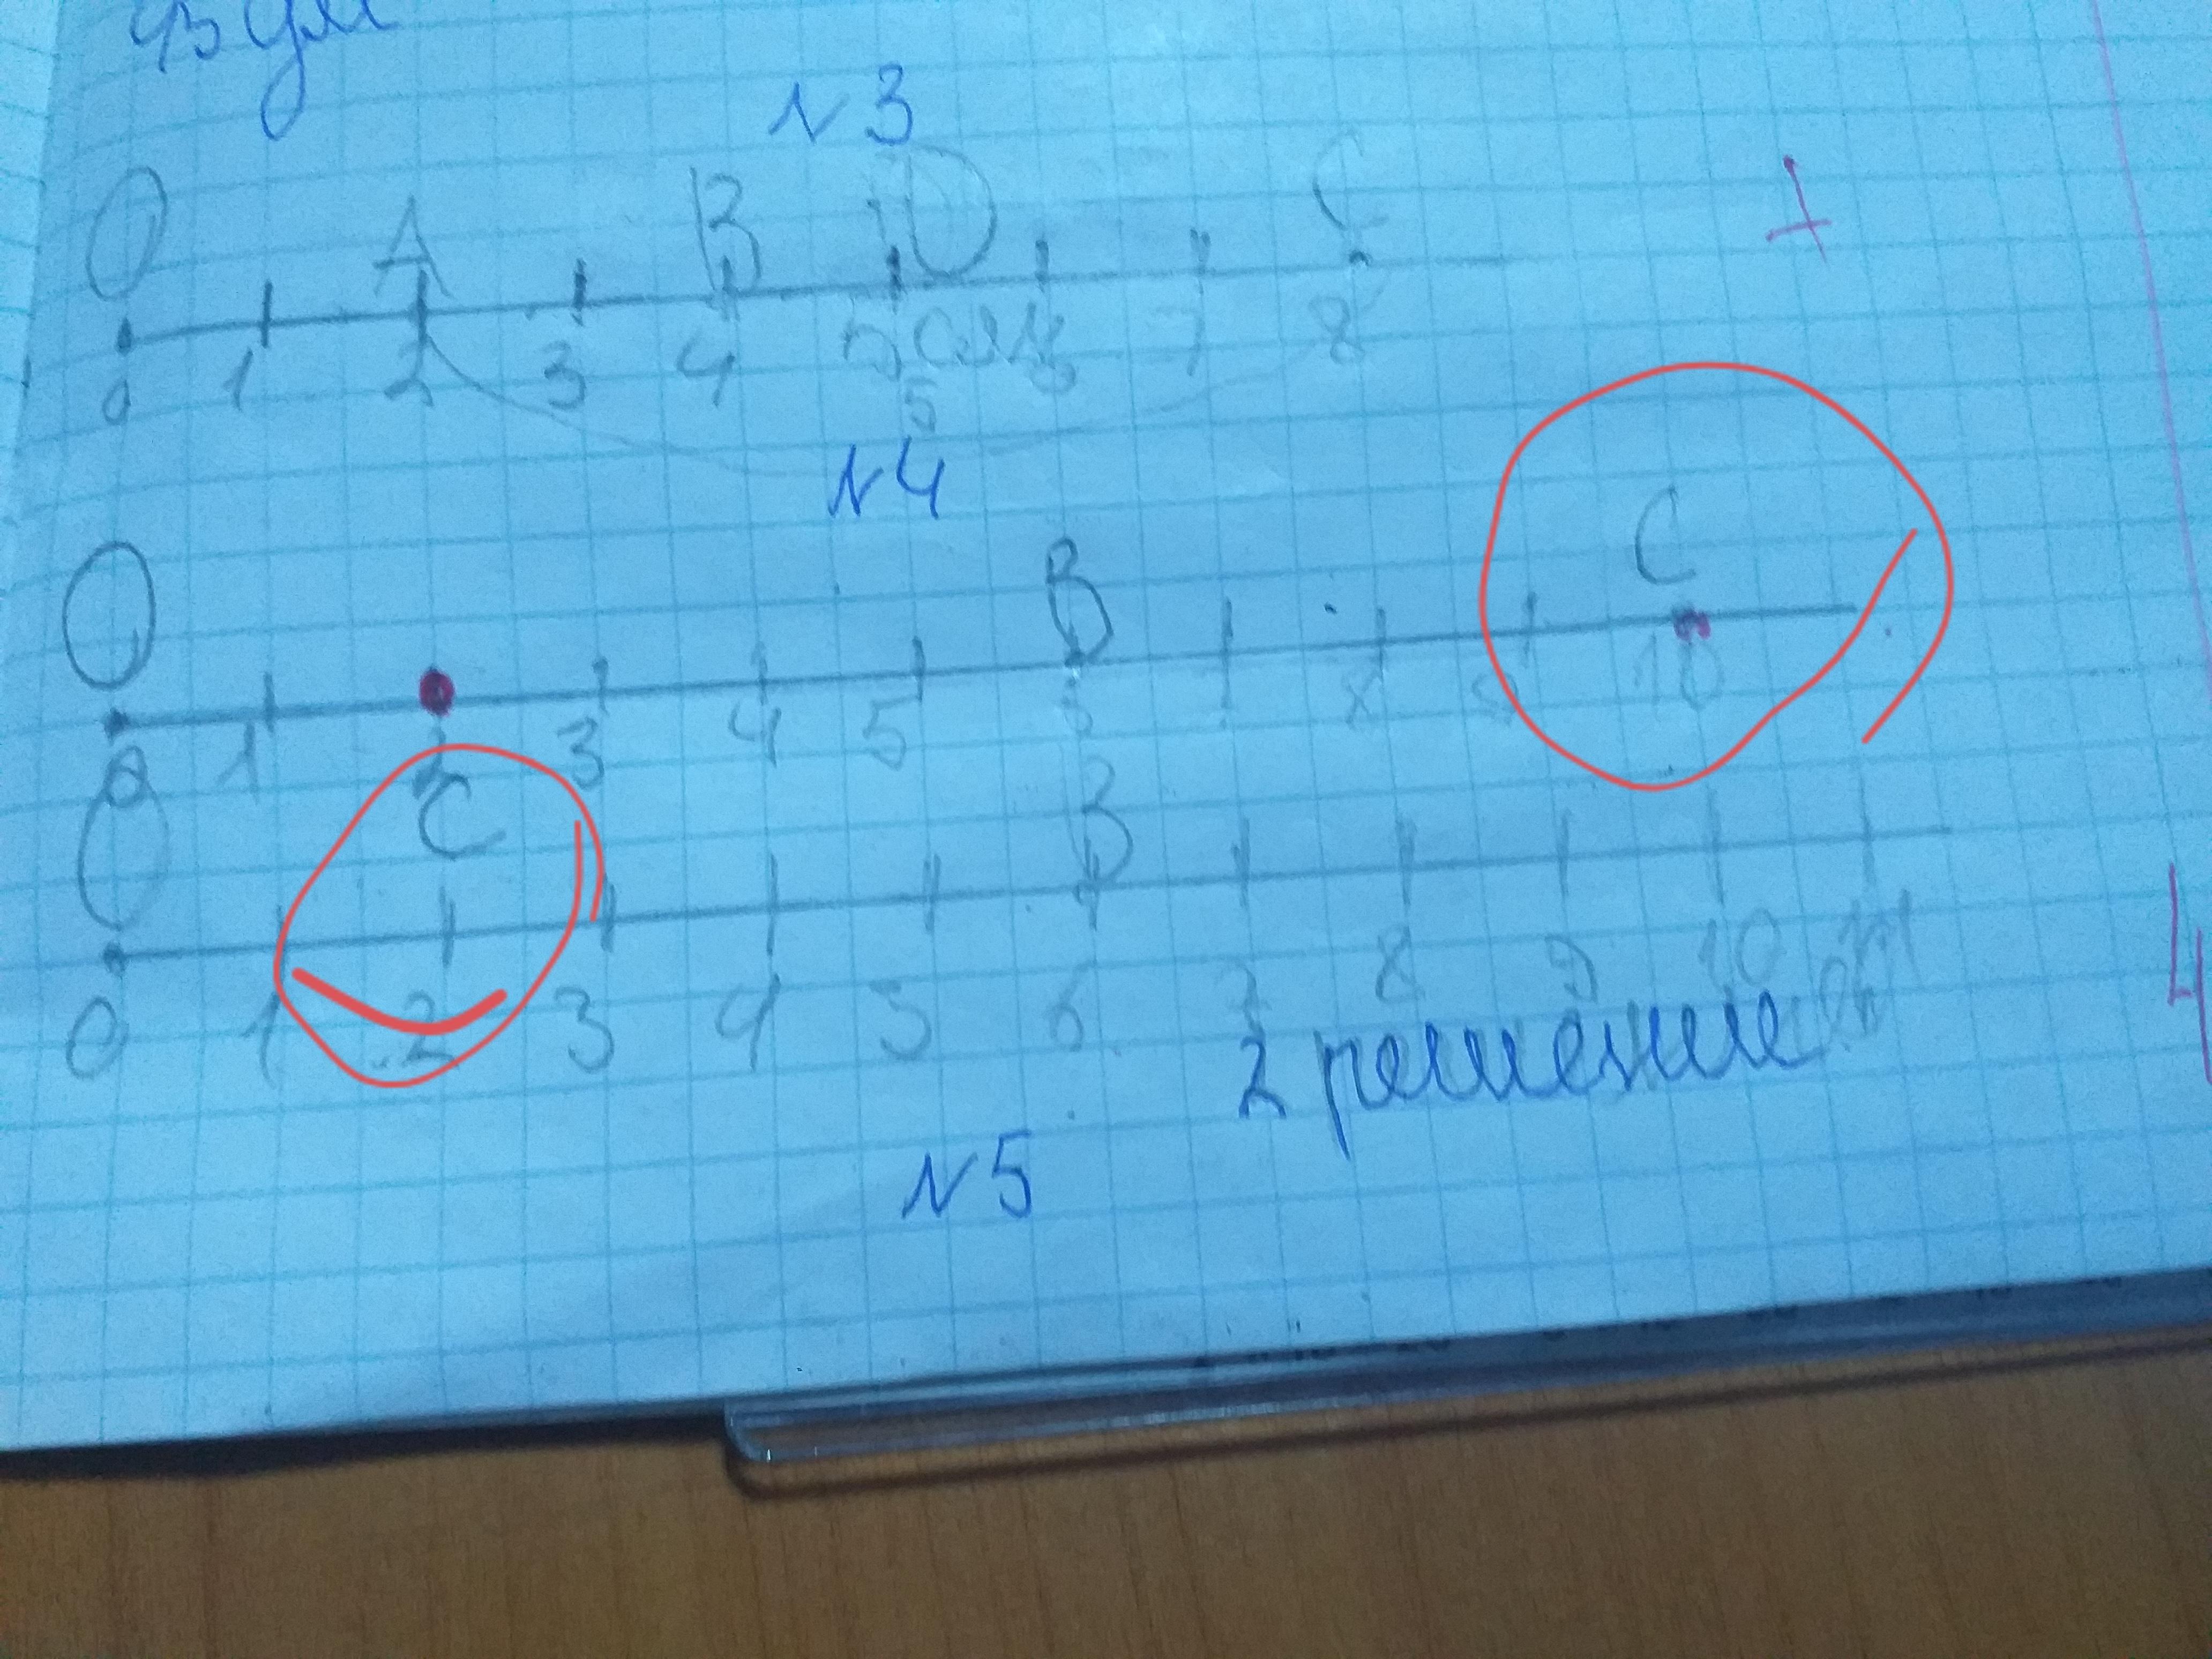 N 3
O A B D C
0 1 2 3 4 5 7 8
5
N 4
O B C
0 1 2 3 4 5 8 9 10
O C B
0 1 2 3 4 5 6 7 8 9 10 11
2 решение
4
N 5